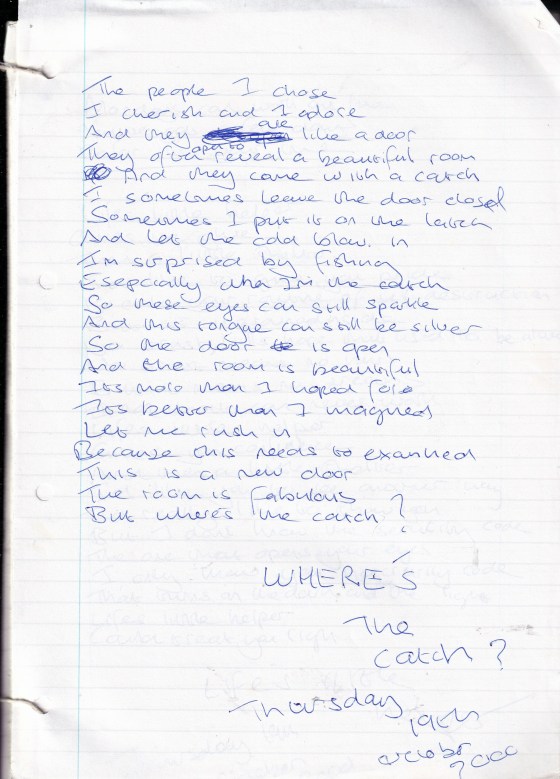 The people I chose
I cherish and I adore
And they are like a door
They often open to reveal a beautiful room
And they come with a catch
I sometimes leave the door closed
Sometimes I put it on the latch
And let the cold blow in
I'm surprised by fishing
Esepcially when I'm the catch
So these eyes can still sparkle
And this tongue can still be silver
So the door is open
And the room is beautiful
Its more than I hoped for
Its better than I imagined
Let me rush in
Because this needs to examined
This is a new door
The room is fabulous
But where's the catch?
WHERE'S
The
catch?
Thursday
19th
October
2000